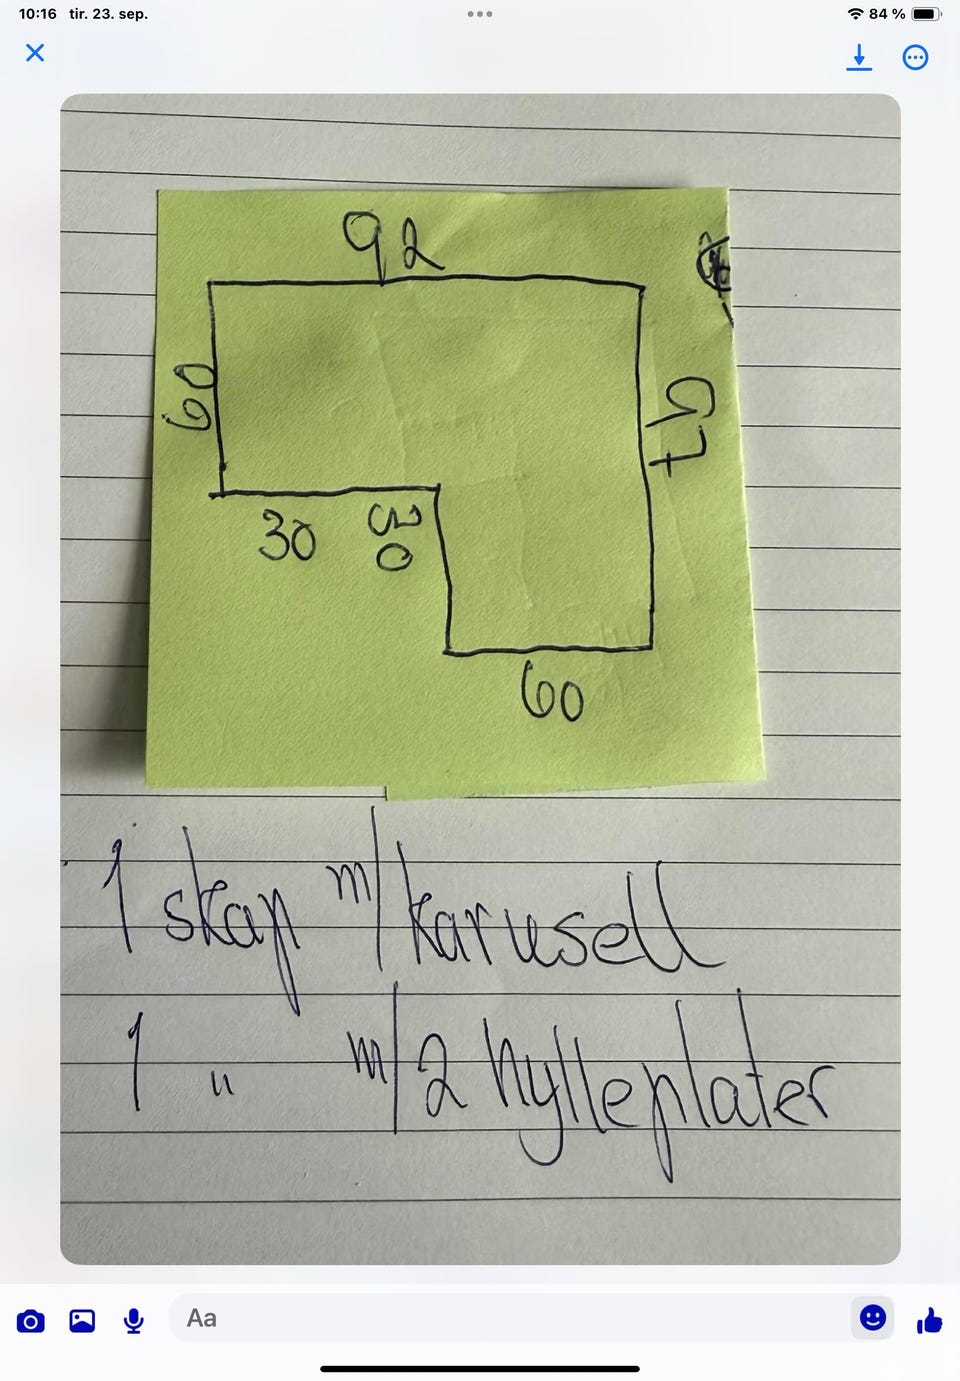 10:16 tir. 23. sep.
84 %
92
60
97
30
30
60
1 skap m/karusell
1 " m/2 hylleplater
Aa